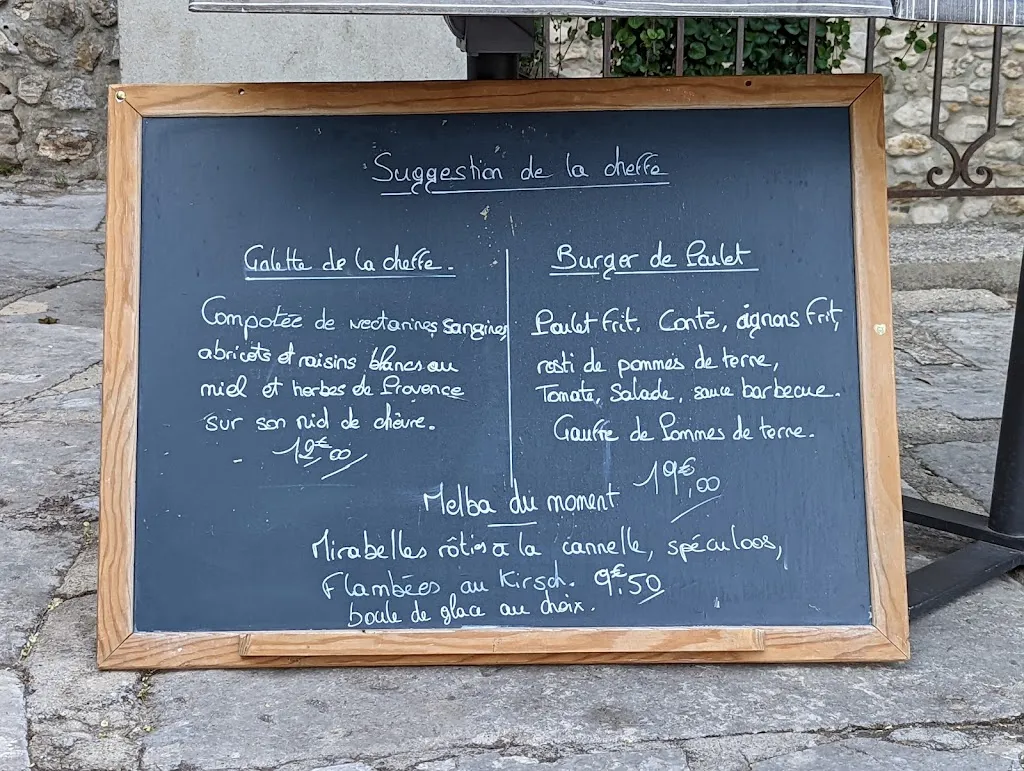 Suggestion de la cheffe
Galette de la cheffe.
Compotée de nectarines sanguines
abricots et raisins blancs au
miel et herbes de Provence
sur son nid de chèvre.
Burger de Poulet
Poulet frit, Conté, oignons Frit,
rosti de pommes de terre,
Tomate, Salade, sauce barbecue.
Gauffe de Pommes de terre.
19€,00
Melba du moment
Mirabelles rôties à la cannelle, spéculoos,
Flambées au Kirsch. 9€,50
boule de glace au choix.